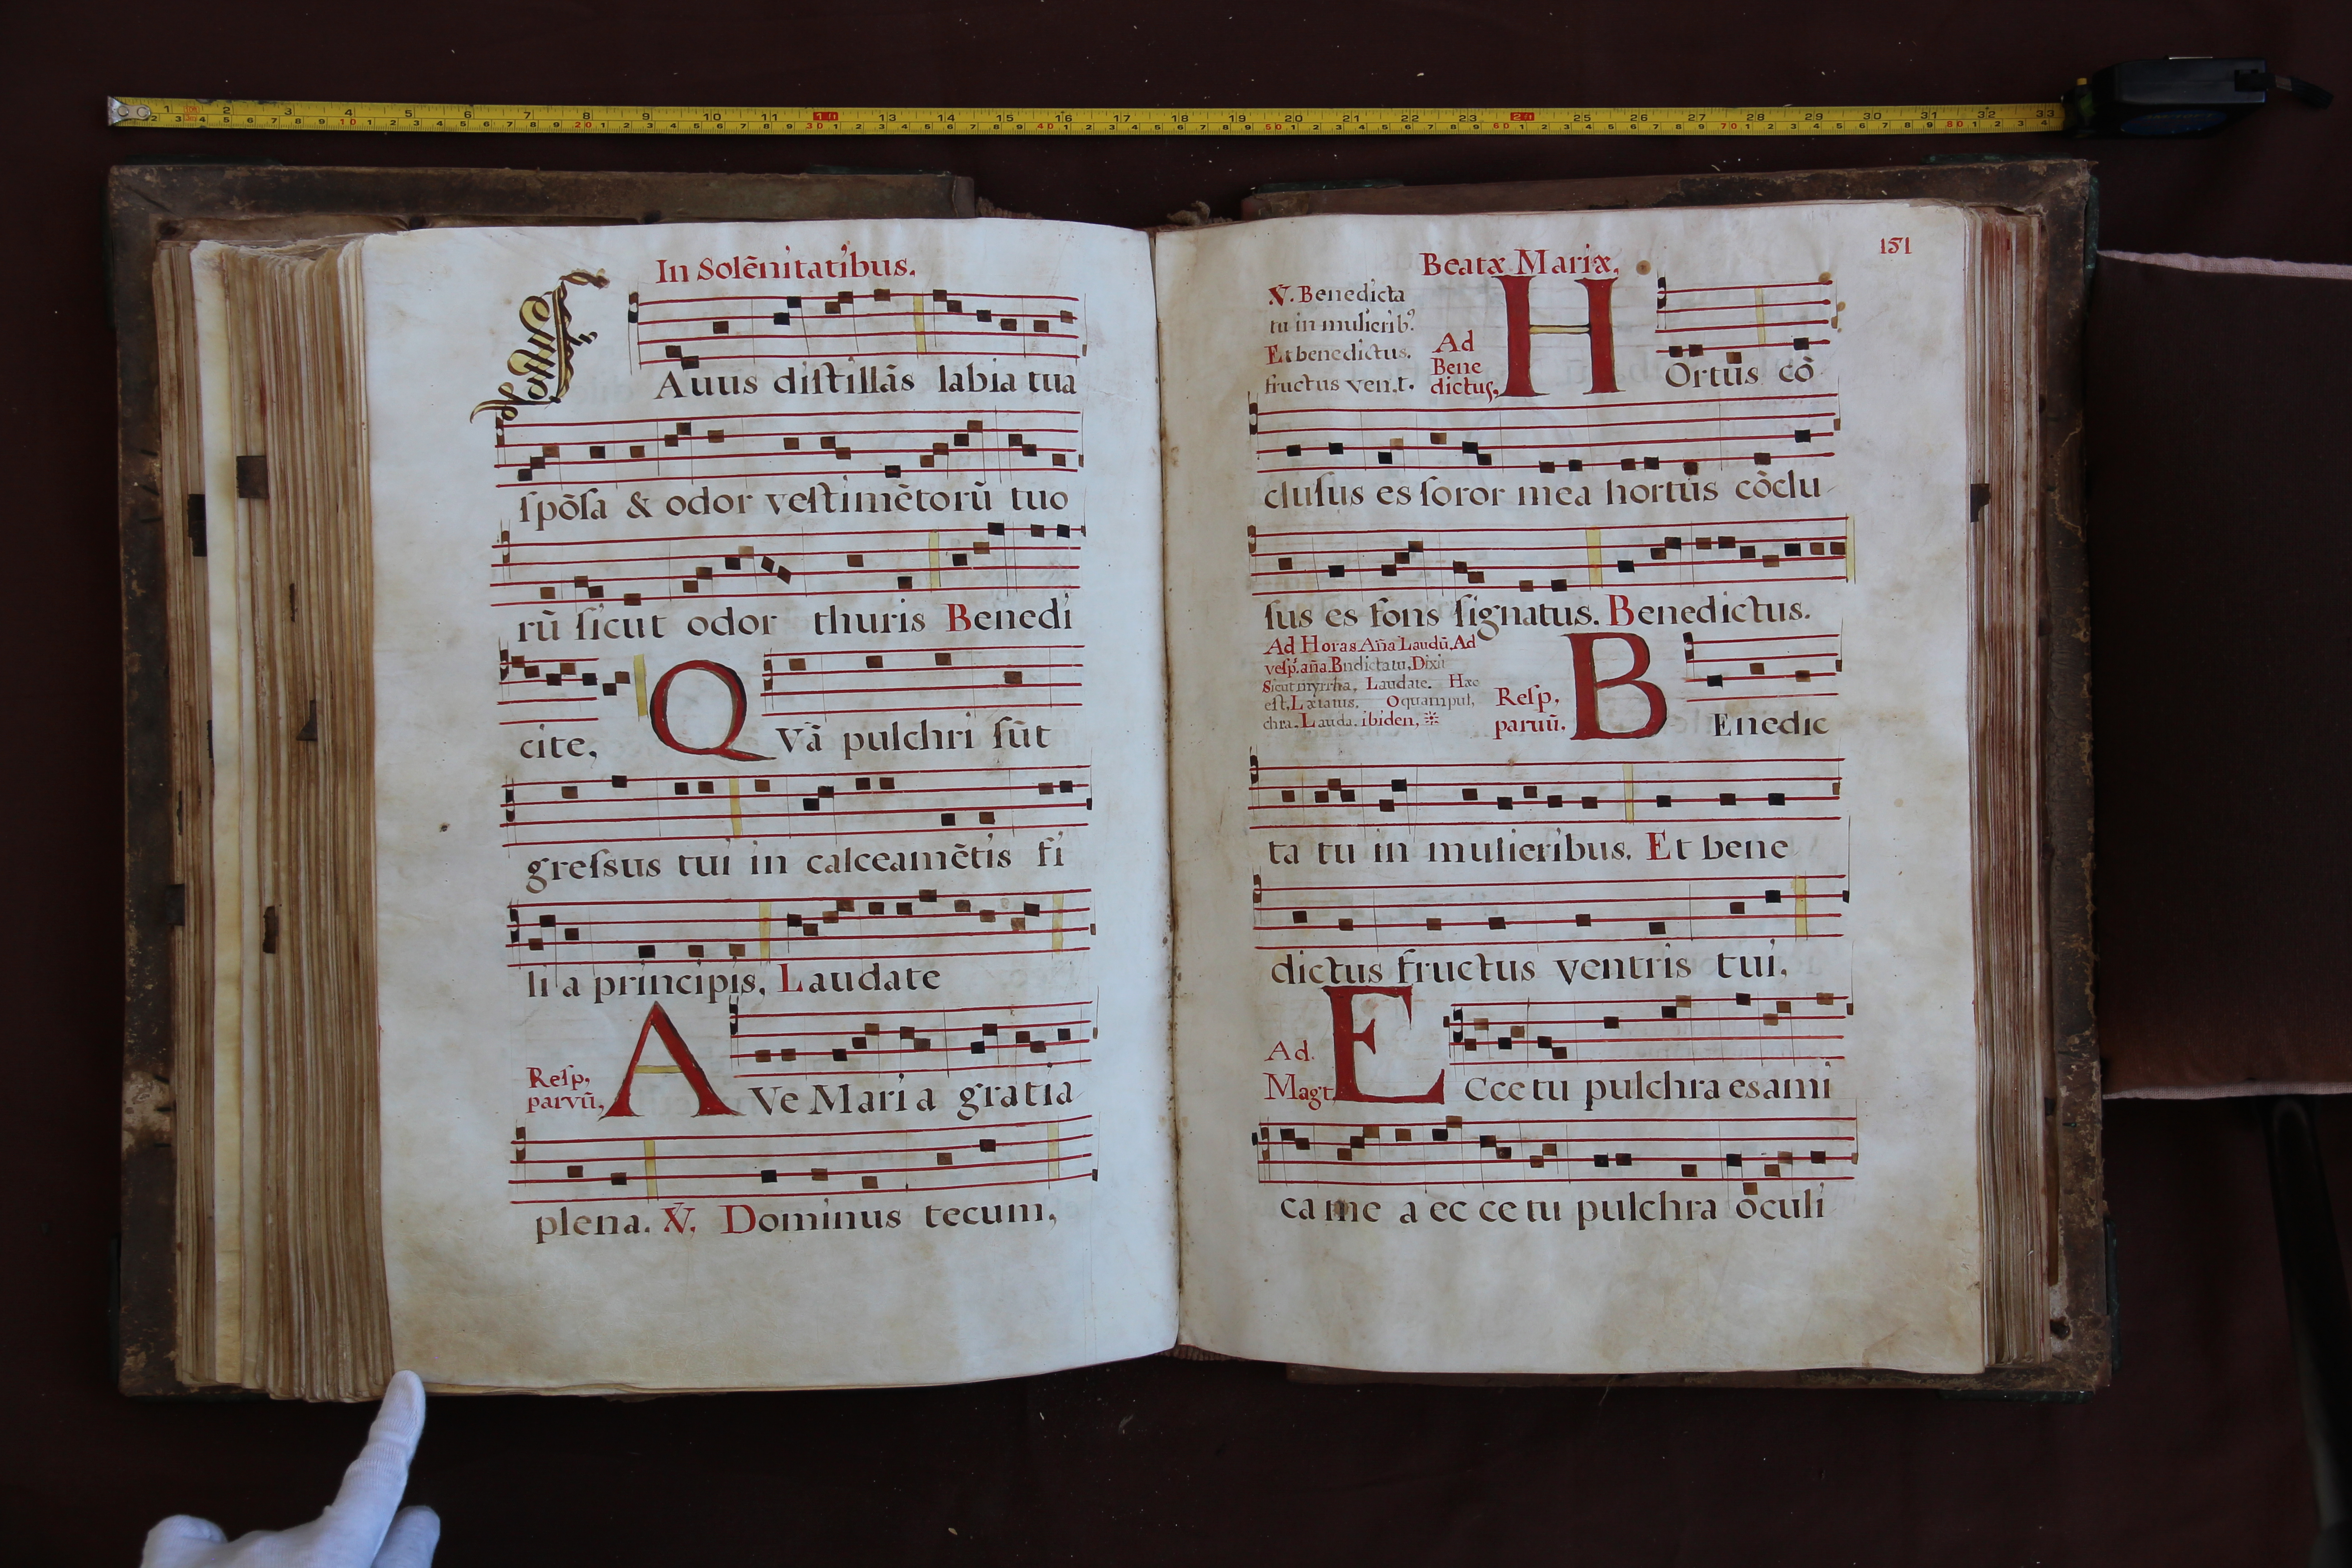 In Solēnitatibus.
FAuus distillās labia tua
spōsa & odor vestimētorū tuo
rū sicut odor thuris Benedi
cite, QVā pulchri sūt
gressus tui in calceamētis fi
li a principis, Laudate
Resp, parvū, AVe Maria gratia
plena. V. Dominus tecum,
Beatæ Mariæ,
151
V. Benedicta
tu in mulierib9
Et benedictus.
fructus ven.t.
Ad
Bene
dictus,
HOrtus cō
clusus es soror mea hortus cōclu
sus es fons signatus. Benedictus.
Ad Horas Aña Laudū, Ad
vesp. aña. Bndictatu, Dixit
Sicut myrrha, Laudate. Hæc
est, Lætatus, O quam pul,
chra. Lauda. ibiden,
Resp,
paruū.
BEnedic
ta tu in mulieribus. Et bene
dictus fructus ventris tui,
Ad
Magt
ECce tu pulchra es ami
ca me a ec ce tu pulchra oculi